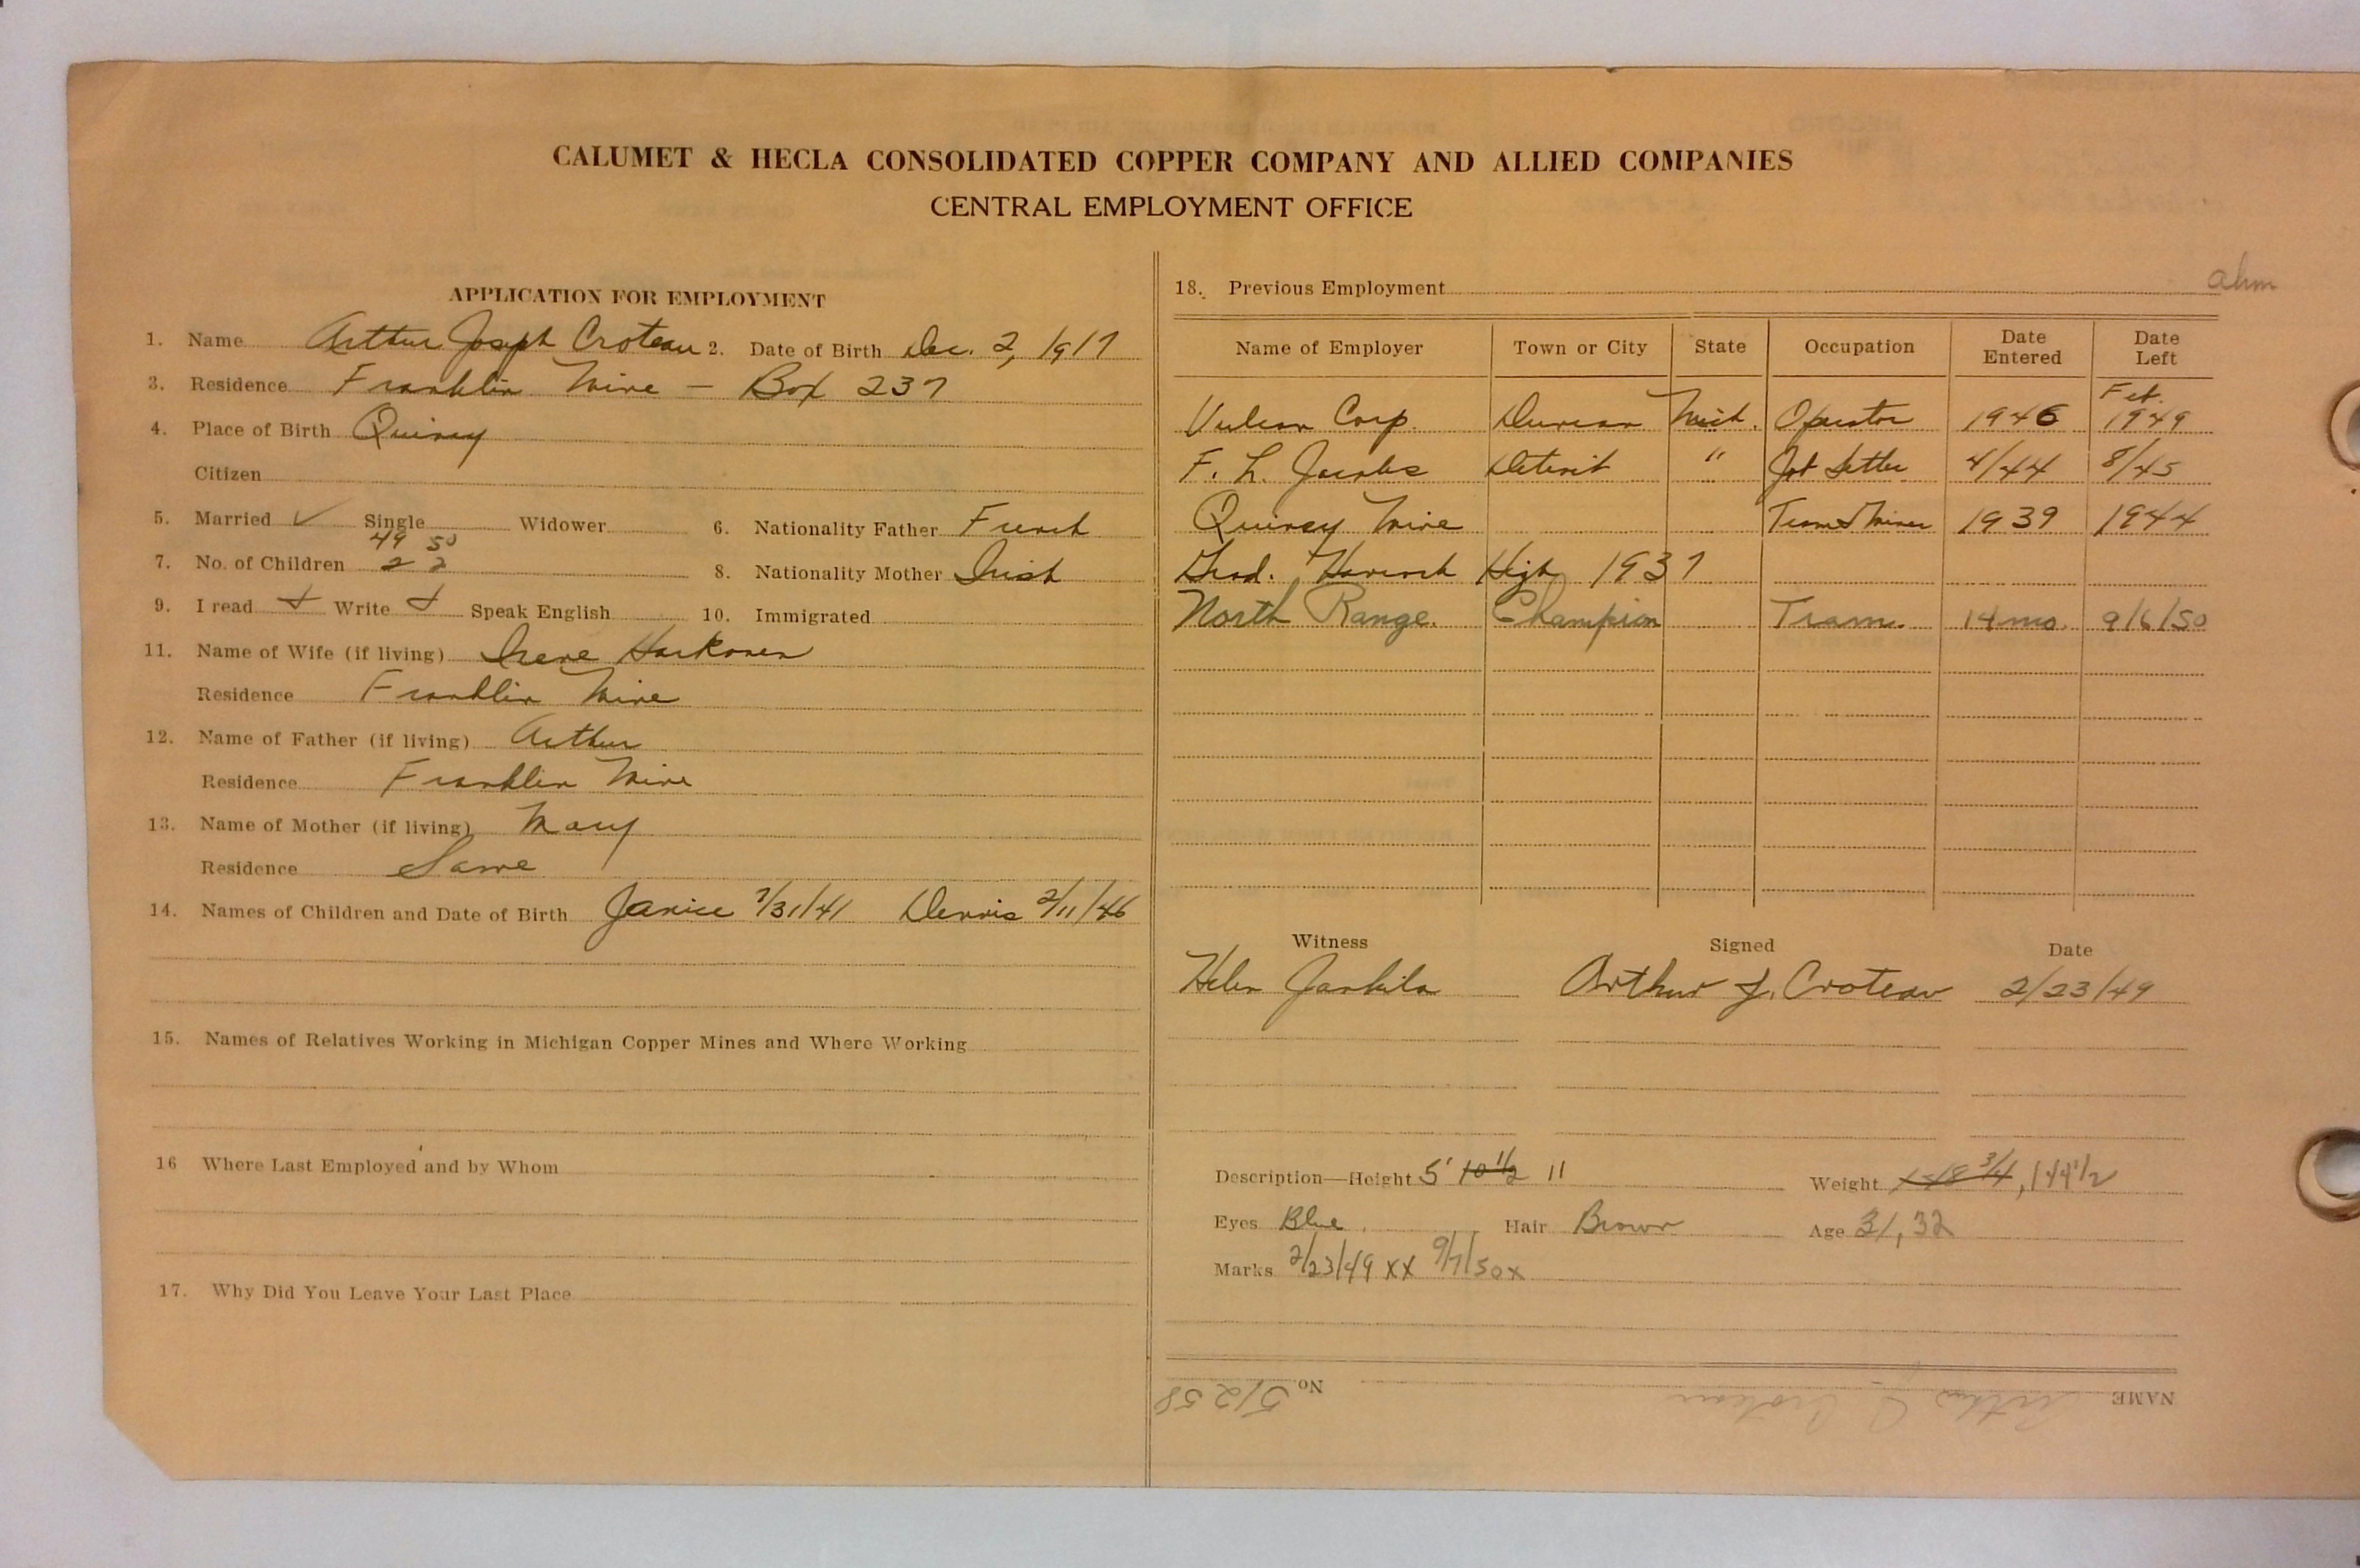 CALUMET & HECLA CONSOLIDATED COPPER COMPANY AND ALLIED COMPANIES
CENTRAL EMPLOYMENT OFFICE
APPLICATION FOR EMPLOYMENT
1. Name Arthur Joseph Croteau 2. Date of Birth Dec. 2, 1917
3. Residence Franklin Mine - Box 237
4. Place of Birth Quincy
Citizen
5. Married ✓ Single Widower 6. Nationality Father French
49 50
7. No. of Children 2 2 8. Nationality Mother Irish
9. I read + Write + Speak English 10. Immigrated
11. Name of Wife (if living) Irene Harkonen
Residence Franklin Mine
12. Name of Father (if living) Arthur
Residence Franklin Mine
13. Name of Mother (if living) Mary
Residence Same
14. Names of Children and Date of Birth Janice 7/31/41 Dennis 2/11/46
15. Names of Relatives Working in Michigan Copper Mines and Where Working
16 Where Last Employed and by Whom
17. Why Did You Leave Your Last Place
18. Previous Employment
ahm
Name of Employer Town or City State Occupation Date Entered Date Left
Vulcan Corp. Mich. Operator 1946 Feb. 1949
F. L. Jacobs Detroit " Job Setter 4/44 8/45
Quincy Mine Tram & Miner 1939 1944
Grad. Hancock High 1937
North Range. Champion Tram. 14 mo. 9/6/50
Witness Signed Date
Helen Jarkila Arthur J. Croteau 2/23/49
Description—Height 5' 10 1/2 11 Weight 148 3/4, 144 1/2
Eyes Blue Hair Brown Age 31, 32
Marks 2/23/49 XX 9/7/50 X
NAME Arthur J. Croteau No. 51258